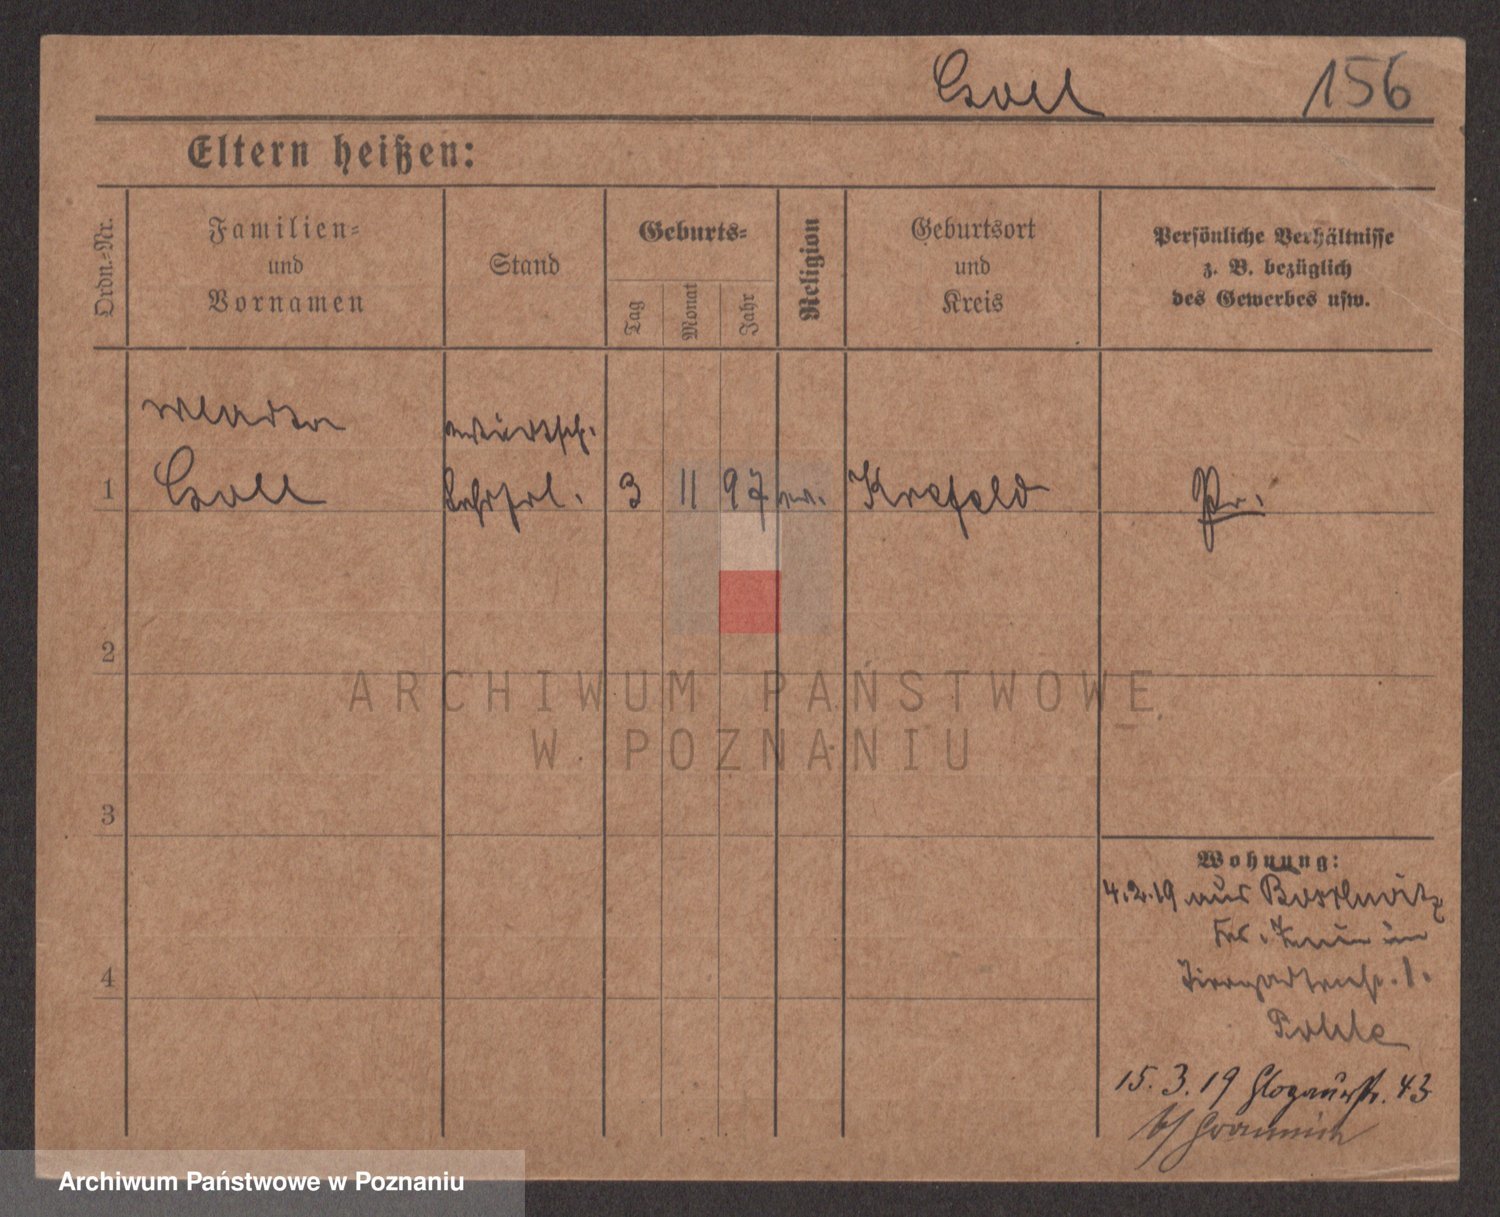 Goll 156
Eltern heißen:
Ordn.-Nr.
Familien-
und
Vornamen
Stand
Geburts-
Tag
Monat
Jahr
Religion
Geburtsort
und
Kreis
Persönliche Verhältnisse
z. B. bezüglich
des Gewerbes usw.
wirtsch.
1 Goll Lehrfrl. 3 11 97 ev. Krefeld Pr.
2
3
4
Wohnung:
4.2.19 aus
Tiergartenstr. 1.
15.3.19 Glogauerstr. 43
b/
ARCHIWUM PAŃSTWOWE
W POZNANIU
Archiwum Państwowe w Poznaniu